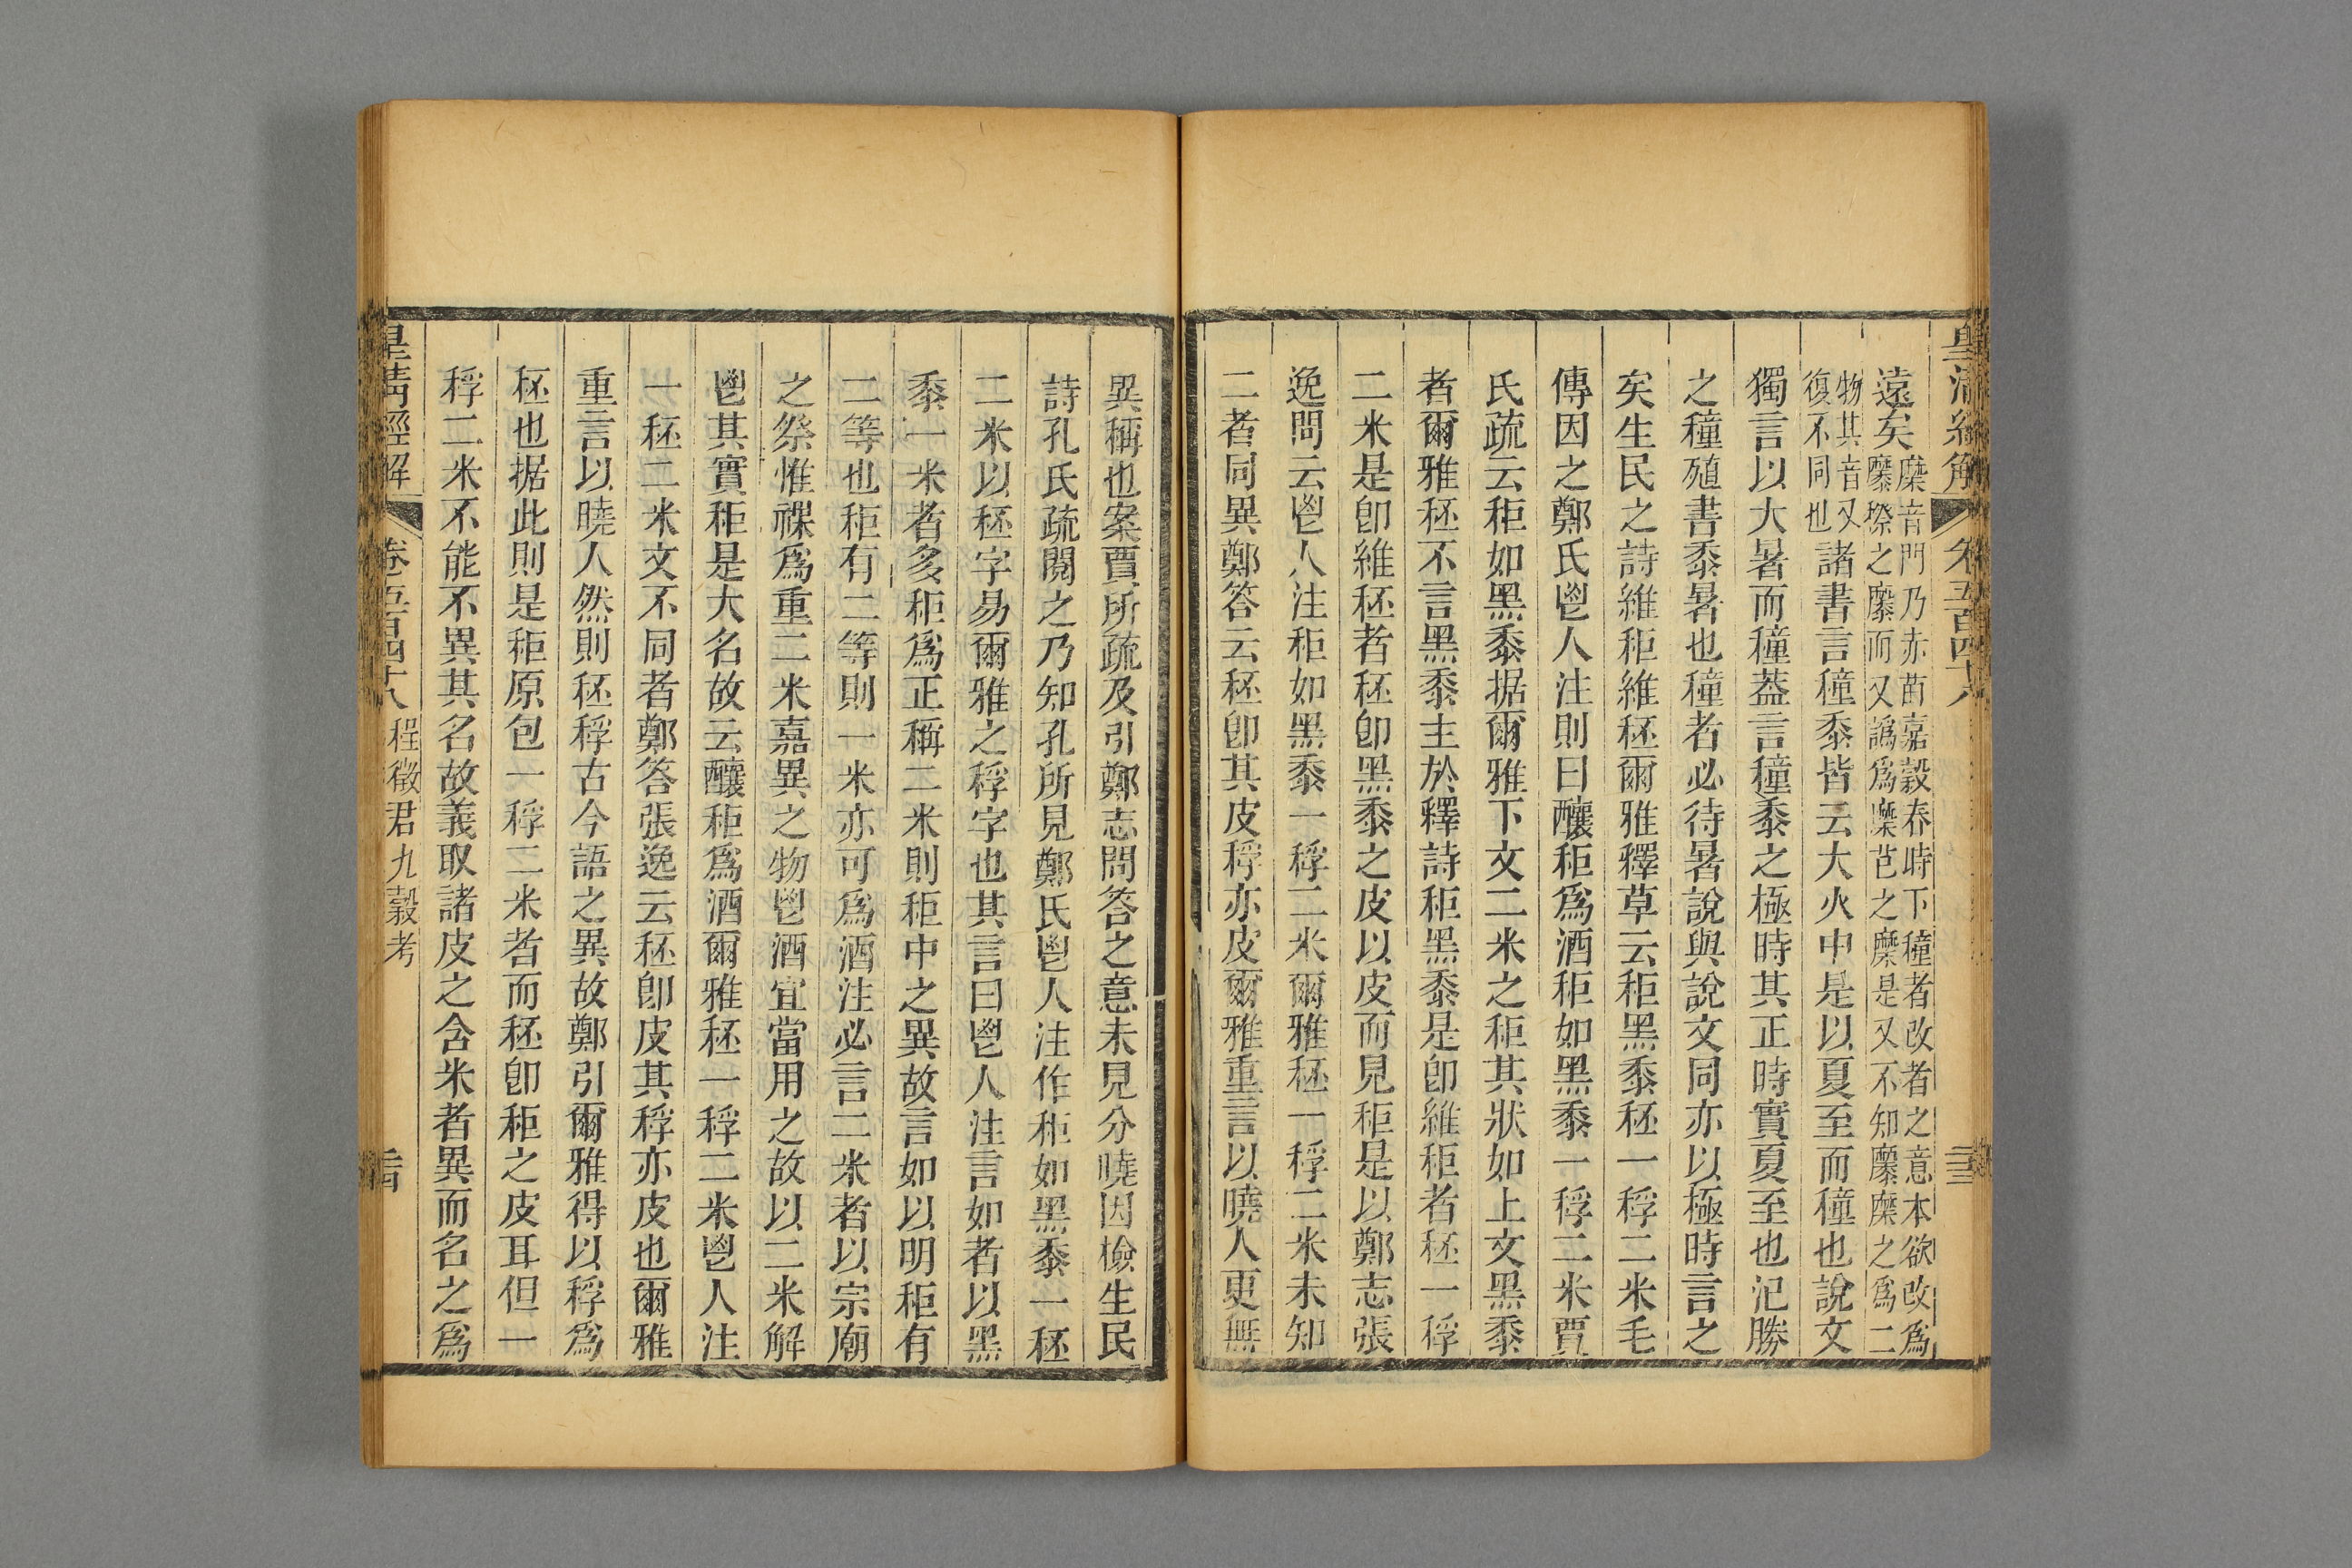 皇清經解 卷五百四十八 二三
遠矣穈音門乃赤苗嘉穀春時下穜者改者之意本欲改爲
䵖穄之䵖而又譌爲穈芑之穈是又不知䵖穈之爲二
物其音又
復不同也諸書言穜黍皆云大火中是以夏至而穜也說文
獨言以大暑而穜葢言穜黍之極時其正時實夏至也氾勝
之穜殖書黍暑也穜者必待暑說與說文同亦以極時言之
矣生民之詩維秬維秠爾雅釋草云秬黑黍秠一稃二米毛
傳因之鄭氏鬯人注則曰釀秬爲酒秬如黑黍一稃二米賈
氏疏云秬如黑黍据爾雅下文二米之秬其狀如上文黑黍
者爾雅秠不言黑黍主於釋詩秬黑黍是卽維秬者秠一稃
二米是卽維秠者秠卽黑黍之皮以皮而見秬是以鄭志張
逸問云鬯人注秬如黑黍一稃二米爾雅秠一稃二米未知
二者同異鄭答云秠卽其皮稃亦皮爾雅重言以曉人更無
異稱也案賈所疏及引鄭志問答之意未見分曉因檢生民
詩孔氏疏閱之乃知孔所見鄭氏鬯人注作秬如黑黍一秠
二米以秠字易爾雅之稃字也其言曰鬯人注言如者以黑
黍一米者多秬爲正稱二米則秬中之異故言如以明秬有
二等也秬有二等則一米亦可爲酒注必言二米者以宗廟
之祭惟祼爲重二米嘉異之物鬯酒宜當用之故以二米解
鬯其實秬是大名故云釀秬爲酒爾雅秠一稃二米鬯人注
一秠二米文不同者鄭答張逸云秠卽皮其稃亦皮也爾雅
重言以曉人然則秠稃古今語之異故鄭引爾雅得以稃爲
秠也据此則是秬原包一稃二米者而秠卽秬之皮耳但一
稃二米不能不異其名故義取諸皮之含米者異而名之爲
皇清經解 卷五百四十八 程徵君九穀考 二四